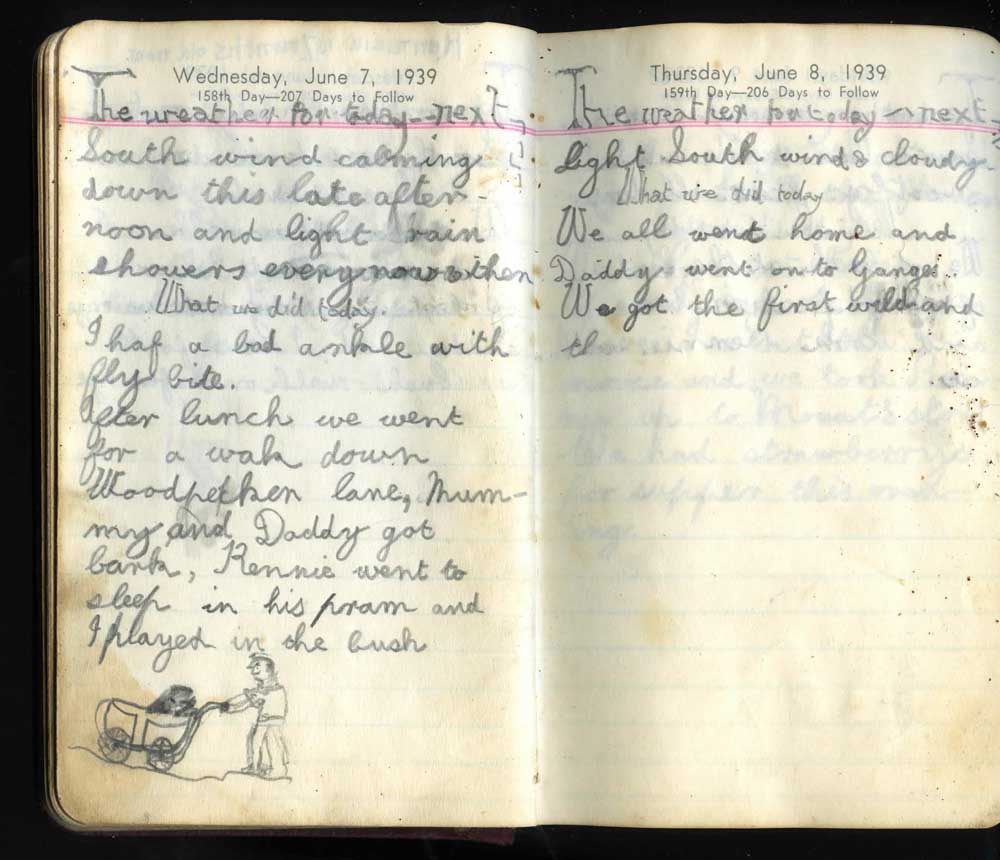 Wednesday, June 7, 1939
158th Day—207 Days to Follow
The weather for today—next
South wind calming
down this late after-
noon and light rain
showers every now & then
What we did today.
I haf a bad ankle with
fly bite.
After lunch we went
for a walk down
Woodpepken lane, Mum-
my and Daddy got
bark, Kennie went to
sleep in his pram and
I played in the bush
Thursday, June 8, 1939
159th Day—206 Days to Follow
The weather for today—next
light South wind & cloudy
What we did today
We all went home and
Daddy went on to Ganges.
We got the first wild and
and we took
to Mouat's store
We had strawberries
for supper this